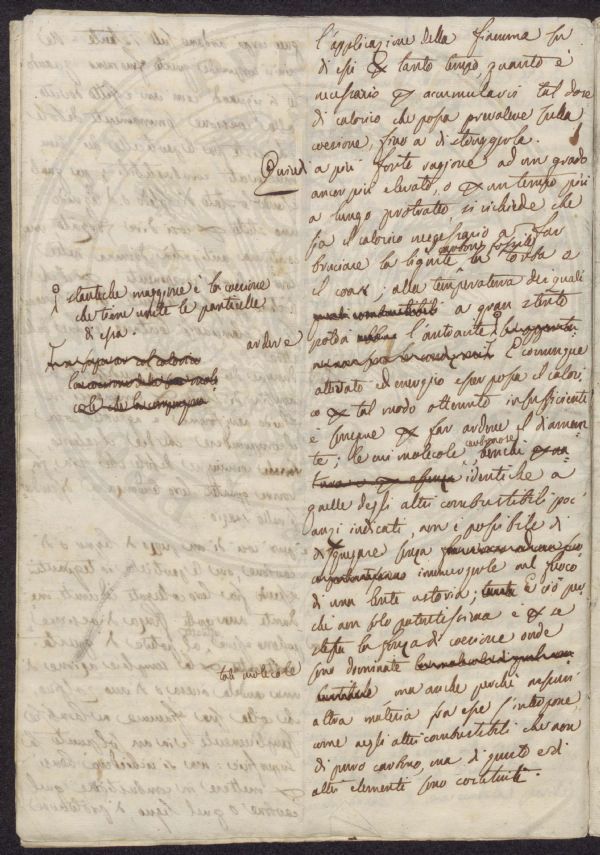 l'applicazione della fiamma su
di essi per tanto tempo, quanto è
necessario per accumularvi tal dose
di calorico che possa prevalere sulla
coesione, fino a distruggerla.
Quindi a più forte ragione ad un grado
ancor più elevato, o per un tempo più
a lungo protratto, si richiede che
sia il calorico necessario a far
bruciare la lignite carbone fossile la Torba e
il coak; alla temperatura dei quali
a gran stento
potrà ardere l'antracite
stanteche maggiore è la coesione
che tiene unite le particelle
di essa.
E comunque
attivato ed energico esser possa il calori-
co per tal modo ottenuto insufficiente
è sempre per far ardere il diaman-
te; le cui molecole carbonose, benchè
identiche a
quelle degli altri combustibili poc'
anzi indicati, non è possibile di
disgregare senza
immergerle nel fuoco
di una lente ustoria; E ciò per-
chè non solo potentissima è per se
stessa la forza di coesione onde
sono dominate tali molecole
ma anche perchè nessun'
altra materia fra esse s'interpone,
come negli altri combustibili che non
di puro carbonio, ma di questo e di
altri elementi sono costituiti.